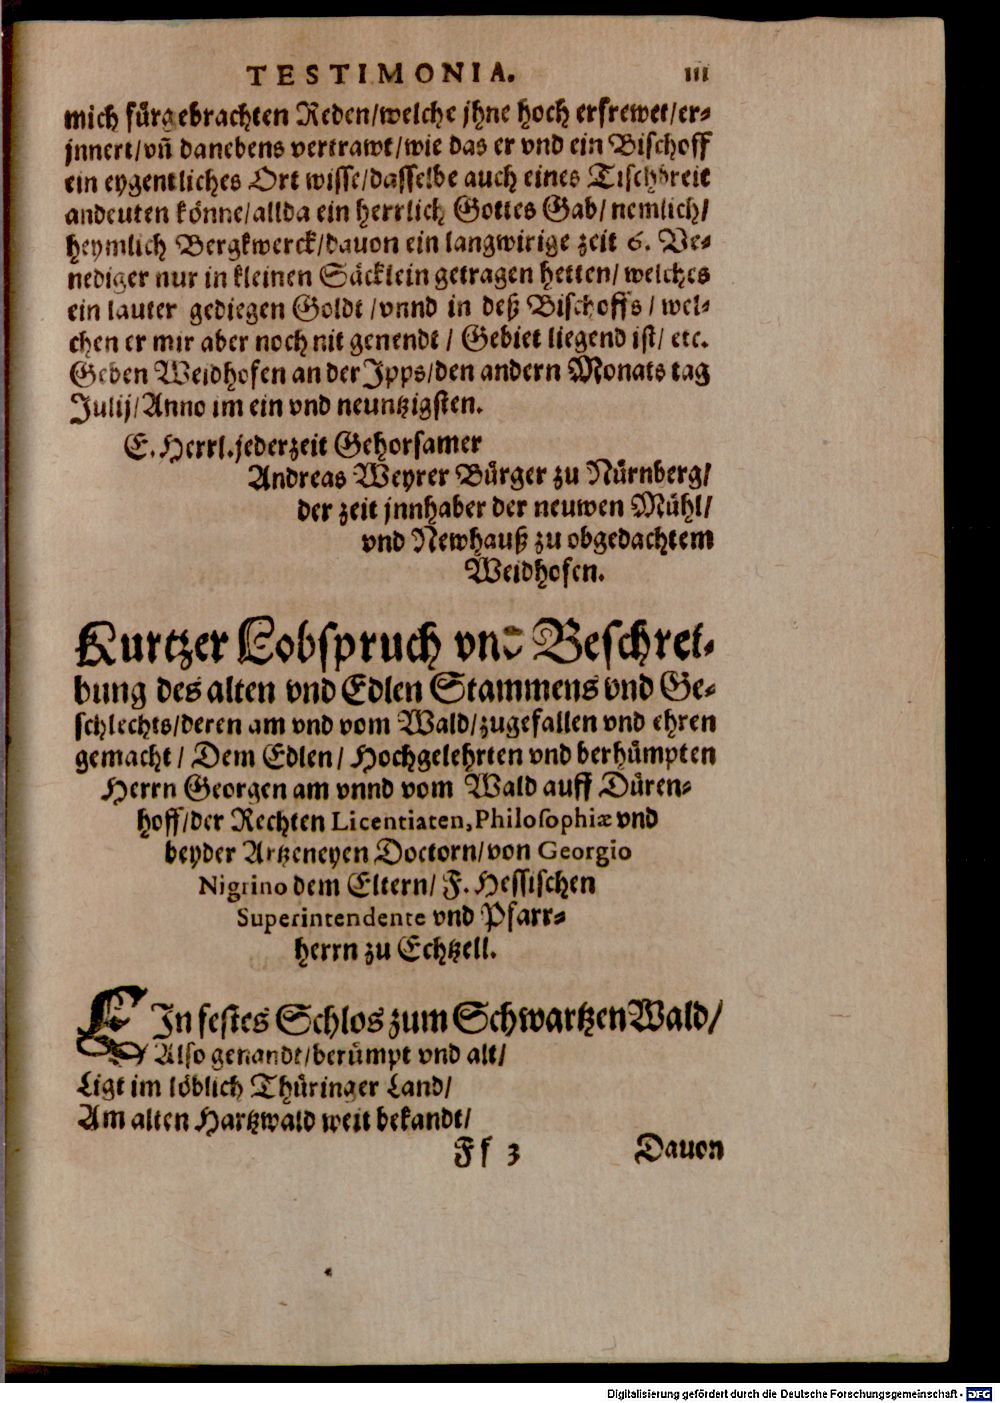 TESTIMONIA. III
mich fürgebrachten Reden/welche jhne hoch erfrewet/er-
jnnert/vñ danebens vertrawt/wie das er vnd ein Bischoff
ein eygentliches Ort wisse/dasselbe auch eines Tischbreit
andeuten könne/allda ein herrlich Gottes Gab/ nemlich/
heymlich Bergkwerck/dauon ein langwirige zeit 6. Ve-
nediger nur in kleinen Säcklein getragen hetten/ welches
ein lauter gediegen Goldt /vnnd in deß Bischoffs / wel-
chen er mir aber noch nit genendt / Gebiet liegend ist/ etc.
Geben Weidhofen an der Jpps/den andern Monats tag
Julij/Anno im ein vnd neuntzigsten.
E. Herrl. jederzeit Gehorsamer
Andreas Weyrer Bürger zu Nürnberg/
der zeit jnnhaber der neuwen Mühl/
vnd Newhauß zu obgedachtem
Weidhofen.
Kurtzer Lobspruch vnd Beschrei-
bung des alten vnd Edlen Stammens vnd Ge-
schlechts/deren am vnd vom Wald/zugefallen vnd ehren
gemacht / Dem Edlen/ Hochgelehrten vnd berhümpten
Herrn Georgen am vnnd vom Wald auff Düren-
hoff/der Rechten Licentiaten, Philosophiæ vnd
beyder Artzeneyen Doctorn/von Georgio
Nigrino dem Eltern/ F. Hessischen
Superintendente vnd Pfarr-
herrn zu Echtzell.
EJn festes Schlos zum Schwartzen Wald/
Also genandt/berümpt vnd alt/
Ligt im löblich Thüringer Land/
Am alten Hartzwald weit bekandt/
Ff 3 Dauon
Digitalisierung gefördert durch die Deutsche Forschungsgemeinschaft - DFG